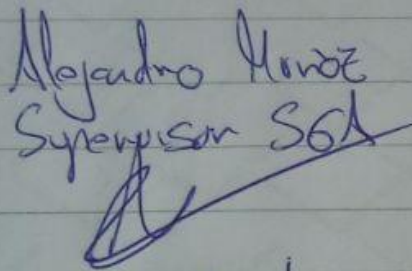 Alejandro Munoz
Supervisor SGA